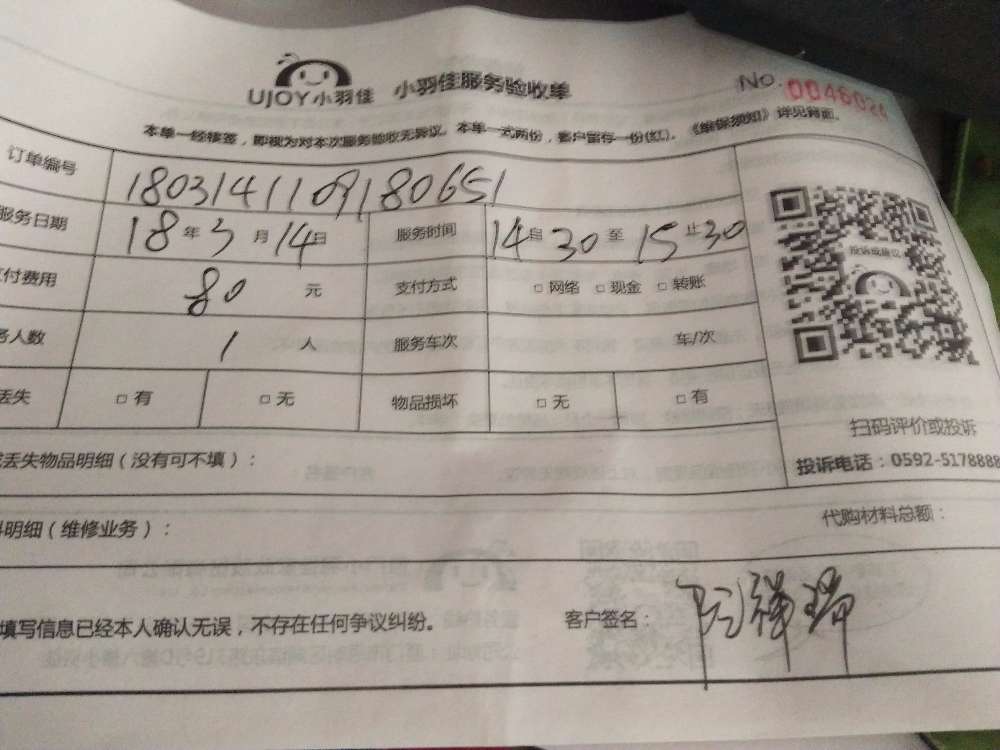 UJOY小羽佳 小羽佳服务验收单 NO. 0046024
本单一经接签，即视为对本次服务验收无异议。本单一式两份，客户留存一份(红)。《维保须知》详见背面。
订单编号 1803141109180651
服务日期 18年3月14日 服务时间 14自30至15止30
付费用 80 元 支付方式 □网络 □现金 □转账
务人数 1 人 服务车次 车/次
丢失 □有 □无 物品损坏 □无 □有
投诉或建议
扫码评价或投诉
投诉电话：0592-5178888
丢失物品明细（没有可不填）：
明细（维修业务）： 代购材料总额：
填写信息已经本人确认无误，不存在任何争议纠纷。 客户签名： 阮祥瑞